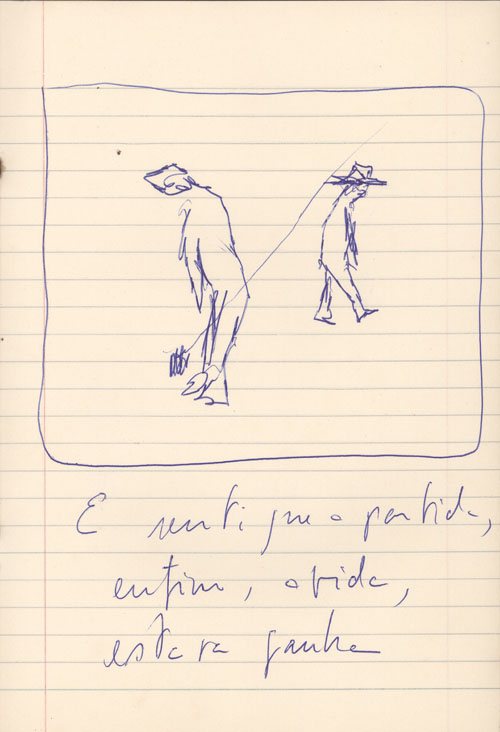 E senti que a partida,
enfim, a vida,
estava ganha